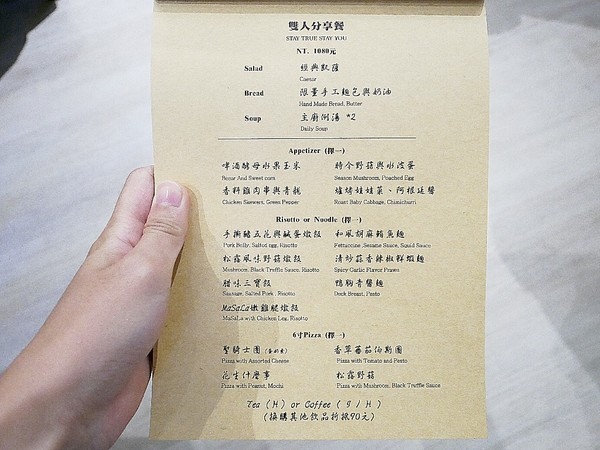 雙人分享餐
STAY TRUE STAY YOU
NT. 1080元
Salad 經典凱薩
Caesar
Bread 限量手工麵包與奶油
Hand Made Bread, Butter
Soup 主廚例湯 *2
Daily Soup
Appetizer (擇一)
啤酒酵母水果玉米 時令野菇與水波蛋
and Sweet corn Season Mushroom, Poached Egg
香料雞肉串與青椒 爐烤娃娃菜、阿根廷醬
Chicken Skewers, Green Pepper Roast Baby Cabbage, Chimichurri
Risotto or Noodle (擇一)
手撕豬五花與鹹蛋燉飯 和風胡麻鮪魚麵
Pork Belly, Salted egg, Risotto Fettuccine, Sesame Sauce, Squid Sauce
松露風味野菇燉飯 清炒蒜香辣椒鮮蝦麵
Mushroom, Black Truffle Sauce, Risotto Spicy Garlic Flavor Prawn
腊味三寶飯 鴨胸青醬麵
Sausage, Salted Pork, Risotto Duck Breast, Pesto
MaSaLa嫩雞腿燉飯
MaSaLa with Chicken Leg, Risotto
6寸Pizza (擇一)
聖騎士團 香草蕃茄伯斯圖
Pizza with Assorted Cheese Pizza with Tomato and Pesto
花生什麼事 松露野菇
Pizza with Peanut, Mochi Pizza with Mushroom, Black Truffle Sauce
Tea (H) or Coffee ( I / H )
(換購其他飲品折抵90元)